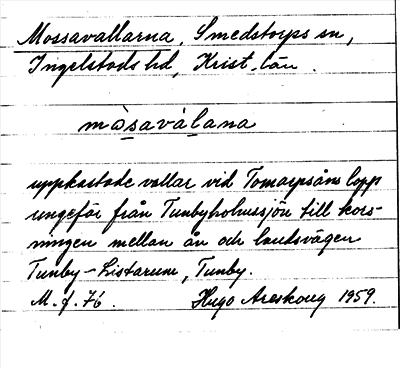 Mossavallarna, Smedstorps sn,
Ingelstads hd, Krist. län.
mòsavàlana
uppkastade vallar vid Tomarpsåns lopp
ungefär från Tunbyholmssjön till kors-
ningen mellan ån och landsvägen
Tunby-Listarum, Tunby.
M. f. 76. Hugo Areskoug 1959.